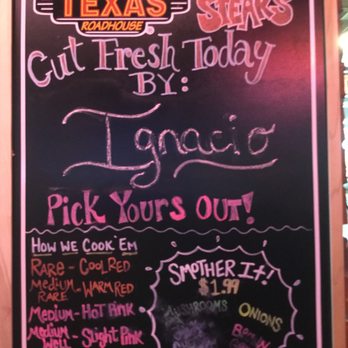 TEXAS
ROADHOUSE
STEAKS
Cut Fresh Today
BY:
Ignacio
Pick Yours Out!
How we Cook 'Em
Rare - Cool Red
Medium Rare - Warm Red
Medium - Hot Pink
Medium Well - Slight Pink
Smother It!
$1.99
Mushrooms
Onions